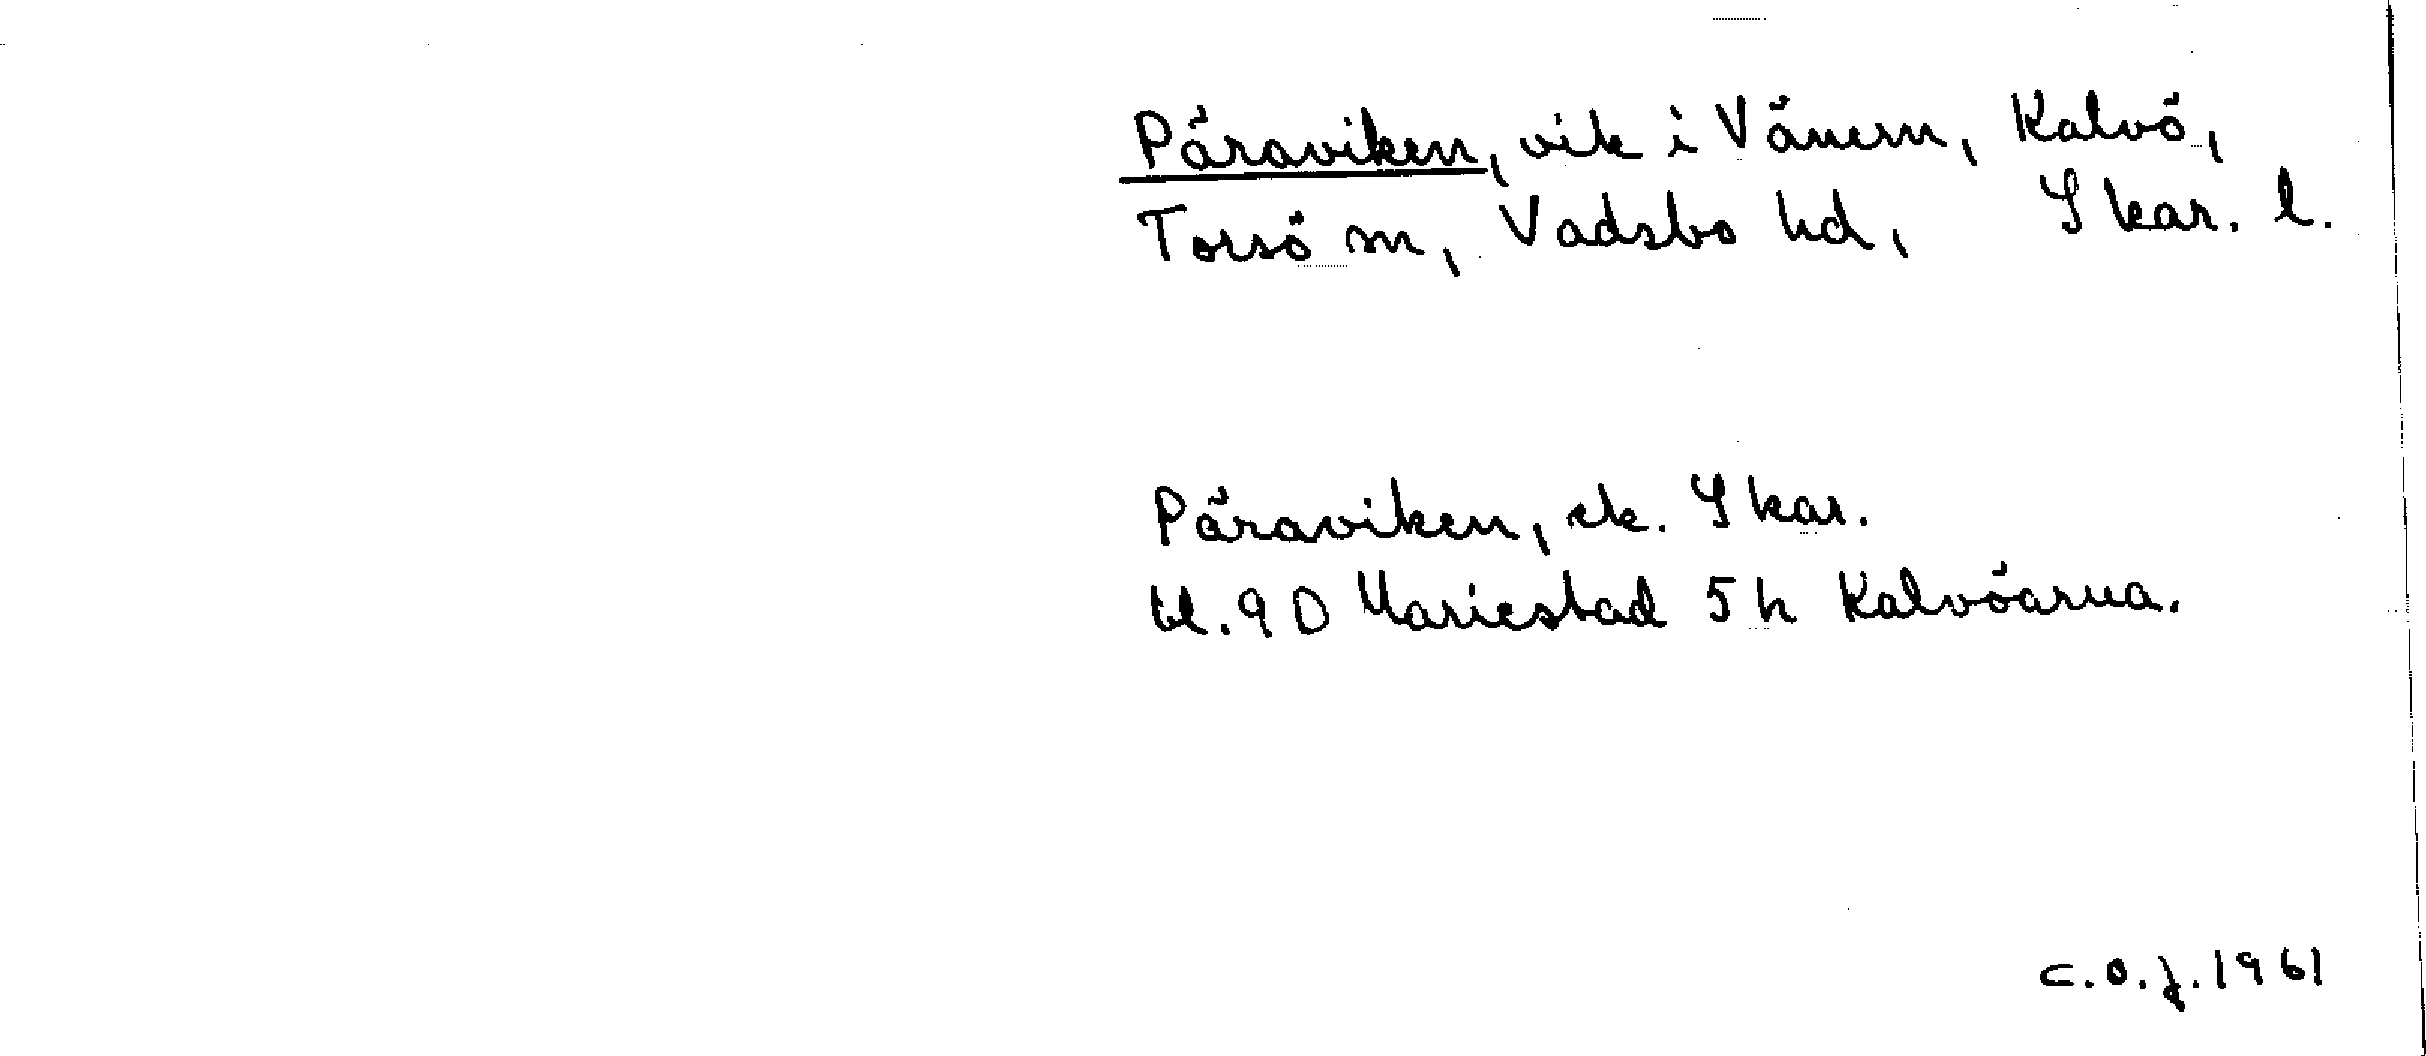 Päraviken, vik i Vänern, Kalvö,
Torsö sn, Vadsbo hd, Skar. l.
Päraviken, ek. Skar.
bl. 9 D Mariestad 5 h Kalvöarna.
C.O.J. 1961